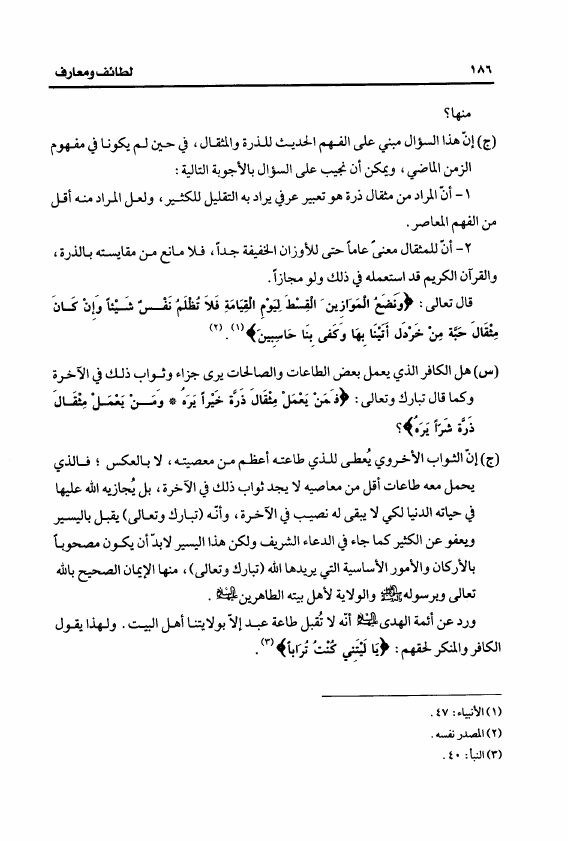 ١٨٦ لطائف ومعارف
منها؟
(ج) إنّ هذا السؤال مبني على الفهم الحديث للذرة والمثقال، في حين لم يكونا في مفهوم
الزمن الماضي، ويمكن أن نجيب على السؤال بالأجوبة التالية:
١- أنّ المراد من مثقال ذرة هو تعبير عرفي يراد به التقليل للكثير، ولعل المراد منه أقل
من الفهم المعاصر.
٢- أنّ للمثقال معنىً عاماً حتى للأوزان الخفيفة جداً، فلا مانع من مقايسته بالذرة،
والقرآن الكريم قد استعمله في ذلك ولو مجازاً.
قال تعالى: ﴿وَنَضَعُ الْمَوَازِينَ الْقِسْطَ لِيَوْمِ الْقِيَامَةِ فَلاَ تُظْلَمُ نَفْسٌ شَيْئاً وَإِنْ كَانَ
مِثْقَالَ حَبَّةٍ مِنْ خَرْدَلٍ أَتَيْنَا بِهَا وَكَفَى بِنَا حَاسِبِينَ﴾(١). (٢)
(س) هل الكافر الذي يعمل بعض الطاعات والصالحات يرى جزاء وثواب ذلك في الآخرة
وكما قال تبارك وتعالى: ﴿فَمَنْ يَعْمَلْ مِثْقَالَ ذَرَّةٍ خَيْراً يَرَهُ * وَمَنْ يَعْمَلْ مِثْقَالَ
ذَرَّةٍ شَرّاً يَرَهُ﴾؟
(ج) إنّ الثواب الأخروي يُعطى للذي طاعته أعظم من معصيته، لا بالعكس ؛ فالذي
يحمل معه طاعات أقل من معاصيه لا يجد ثواب ذلك في الآخرة، بل يُجازيه الله عليها
في حياته الدنيا لكي لا يبقى له نصيب في الآخرة، وأنّه (تبارك وتعالى) يقبل باليسير
ويعفو عن الكثير كما جاء في الدعاء الشريف ولكن هذا اليسير لابدّ أن يكون مصحوباً
بالأركان والأمور الأساسية التي يريدها الله (تبارك وتعالى)، منها الإيمان الصحيح بالله
تعالى وبرسوله والولاية لأهل بيته الطاهرين .
ورد عن أئمة الهدى أنّه لا تُقبل طاعة عبد إلاّ بولايتنا أهل البيت. ولهذا يقول
الكافر والمنكر لحقهم: ﴿يَا لَيْتَنِي كُنْتُ تُرَاباً﴾(٣).
(١) الأنبياء: ٤٧.
(٢) المصدر نفسه.
(٣) النبأ: ٤٠.